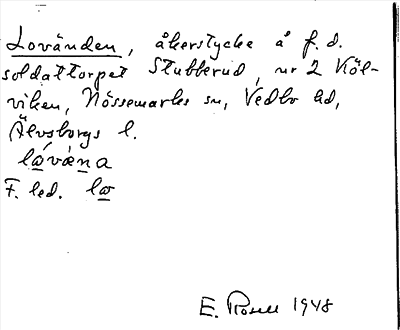 Lovänden, åkerstycke å f.d.
soldattorpet Stubberud, nr 2 Köl-
viken, Nössemarks sn, Vedbo hd,
Älvsborgs l.
F. led.
E. Rosell 1948